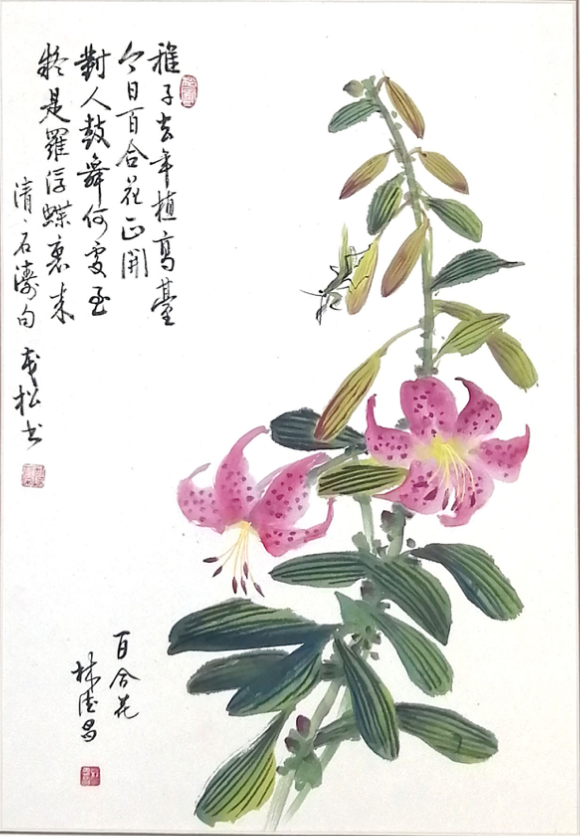 稚子去年植高臺
今日百合花正開
對人鼓舞何處至
疑是羅浮蝶裏來
清、石濤句 茂松书
百合花
林德昌